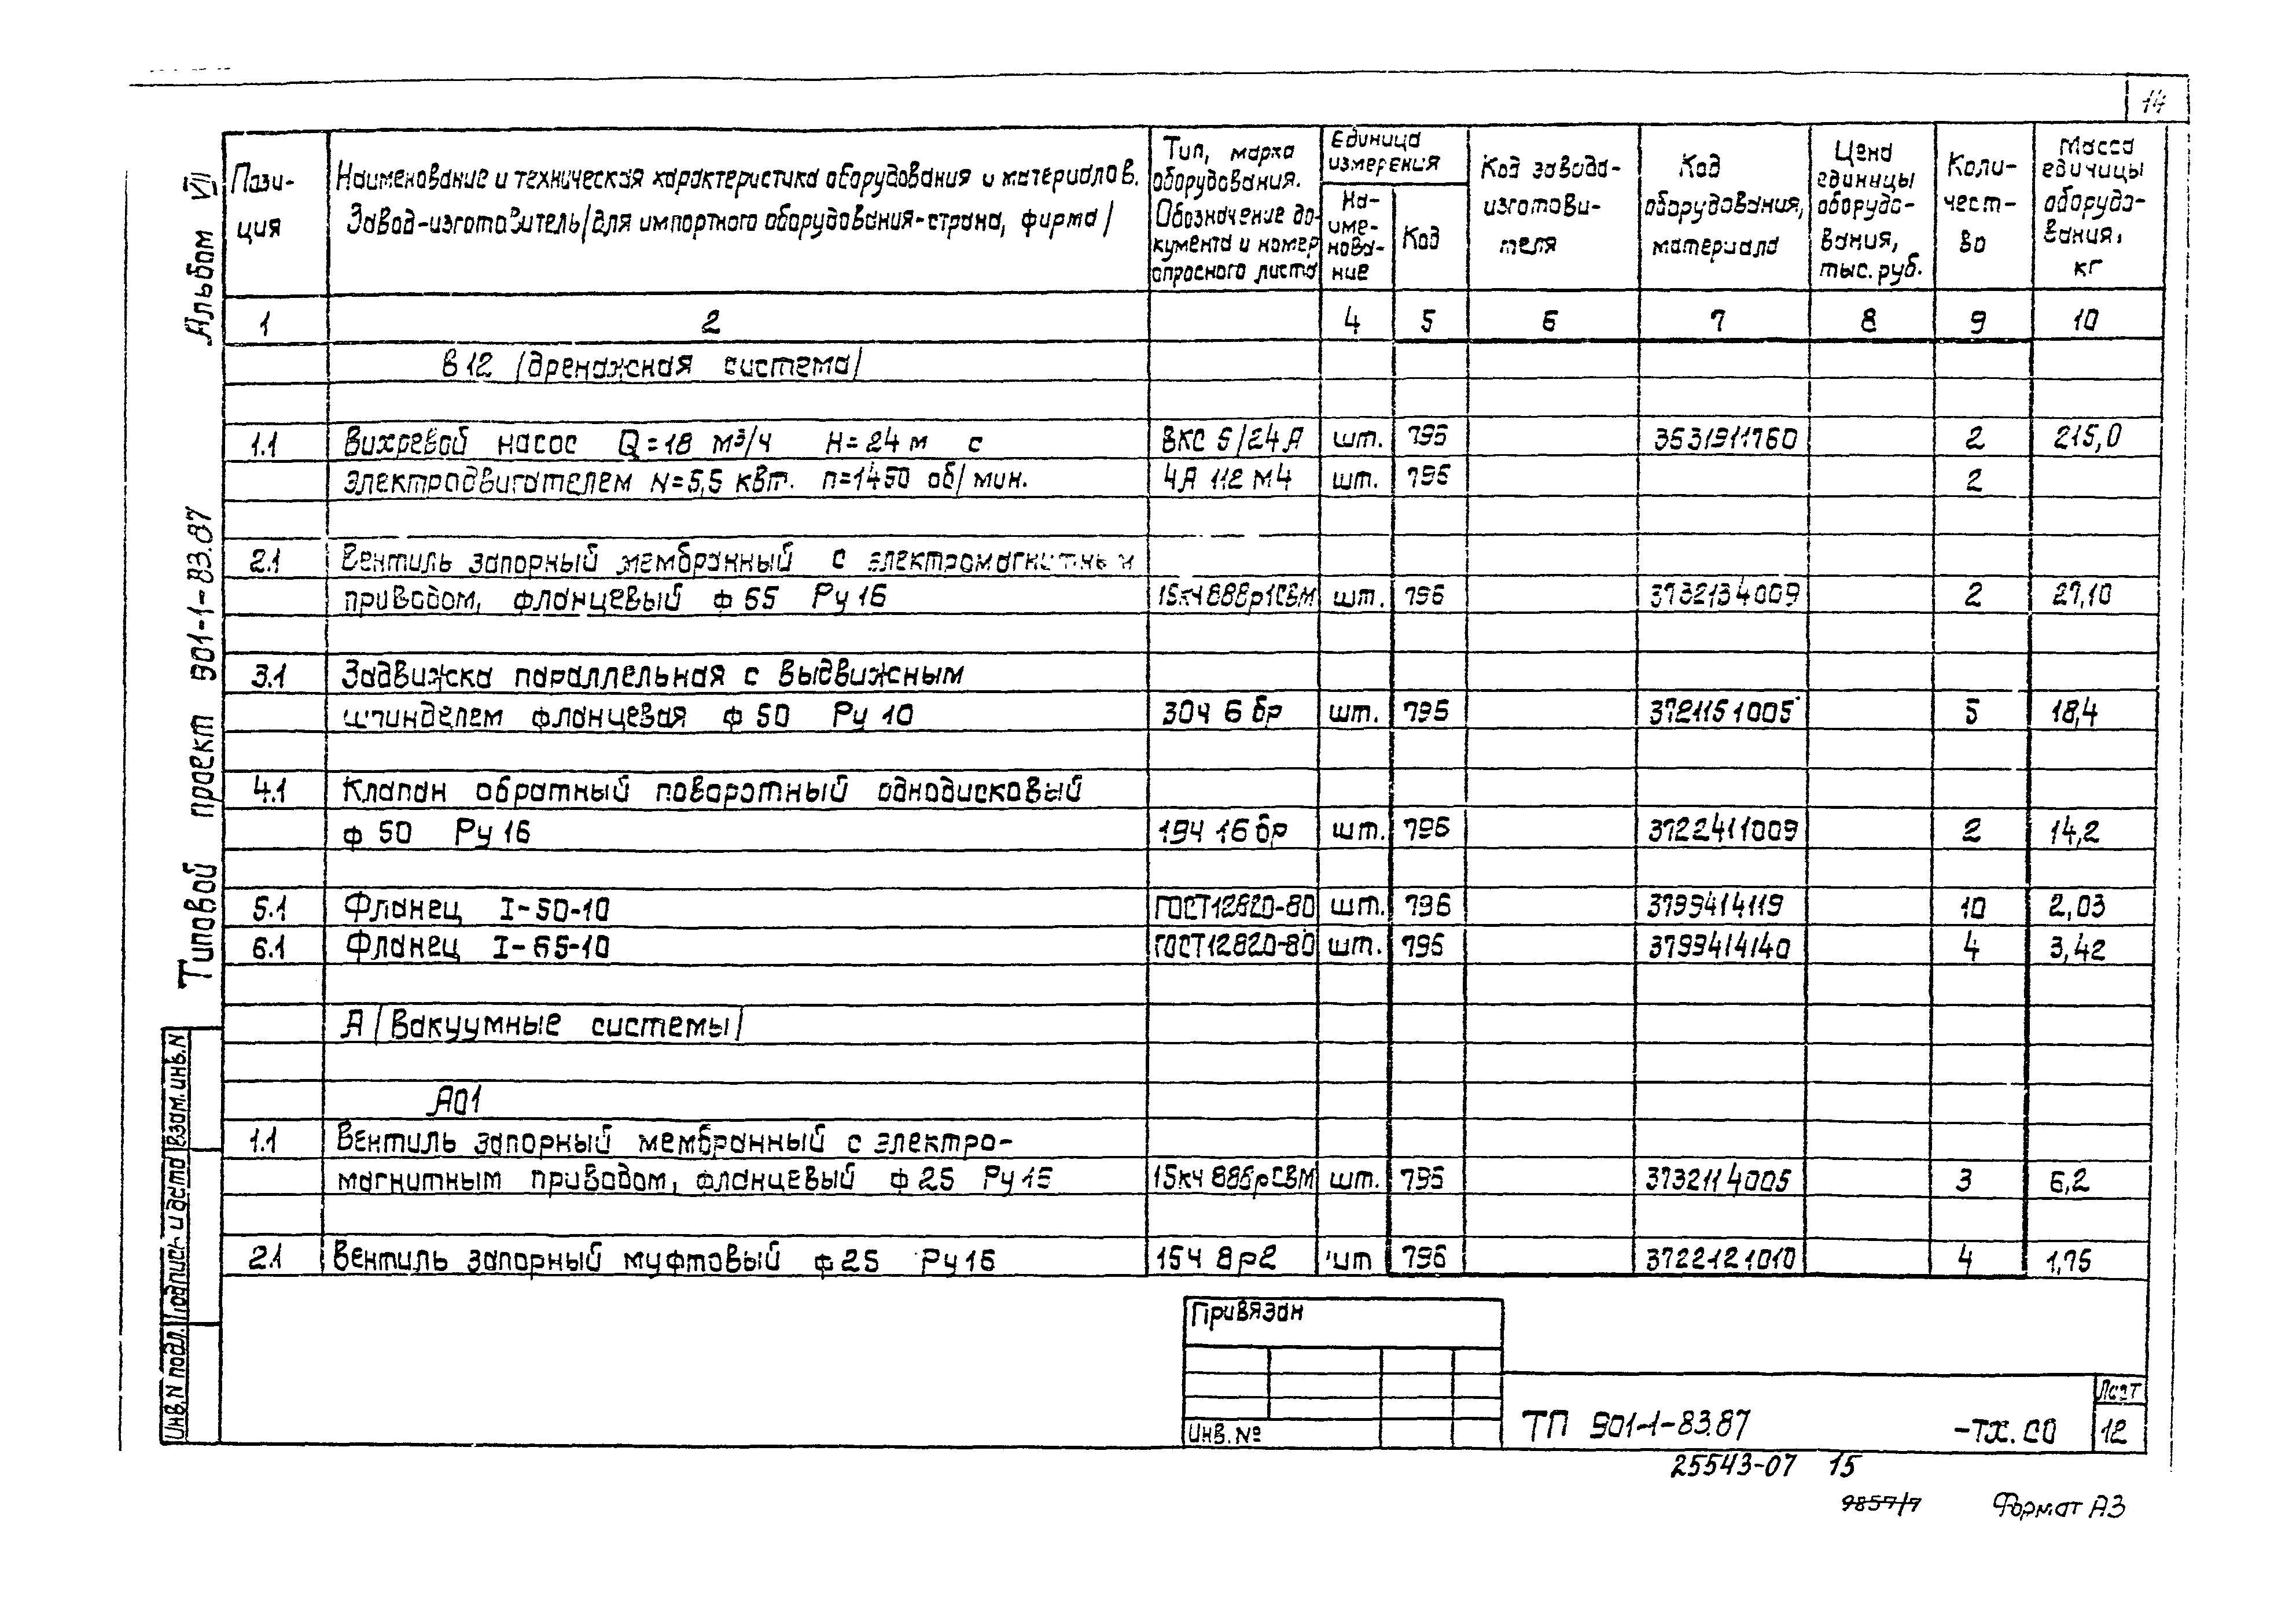 14
Альбом VII
Типовой проект 901-1-83.87
Пози-
ция
Наименование и техническая характеристика оборудования и материалов.
Завод-изготовитель/для импортного оборудования-страна, фирма/
Тип, марка
оборудования.
Обозначение до-
кумента и номер
опросного листа
Единица
измерения
На-
име-
нова-
ние
Код
Код завода-
изготови-
теля
Код
оборудования,
материала
Цена
единицы
оборудо-
вания,
тыс. руб.
Коли-
чест-
во
Масса
единицы
оборудо-
вания,
кг
1 2 4 5 6 7 8 9 10
В12 /дренажная система/
1.1 Вихревой насос Q=18 м³/ч H=24 м с ВКС 5/24А шт. 796 3631911760 2 215,0
электродвигателем N=5,5 квт. n=1450 об/мин. 4А 112 М4 шт. 796 2
2.1 Вентиль запорный мембранный с электромагнитным
приводом, фланцевый ф 65 Ру 16 15кч888р1СВМ шт. 796 3732134009 2 27,10
3.1 Задвижка параллельная с выдвижным
шпинделем фланцевая ф 50 Ру 10 30ч 6 бр шт. 796 3721151005 5 18,4
4.1 Клапан обратный поворотный однодисковый
ф 50 Ру 16 19ч 16 бр шт. 796 3722411009 2 14,2
5.1 Фланец I-50-10 ГОСТ12820-80 шт. 796 3799414119 10 2,03
6.1 Фланец I-65-10 ГОСТ12820-80 шт. 796 3799414140 4 3,42
А /Вакуумные системы/
А01
1.1 Вентиль запорный мембранный с электро-
магнитным приводом, фланцевый ф 25 Ру 16 15кч 888рСВМ шт. 796 3732114005 3 6,2
2.1 Вентиль запорный муфтовый ф 25 Ру 16 15ч 8р2 шт 796 3722121010 4 1,75
Взам.инв.N
Подпись и дата
Инв.N подл.
Привязан
Инв.№
ТП 901-1-83.87 -ТХ.СО
Лист
12
25543-07 15
9857/7
Формат А3